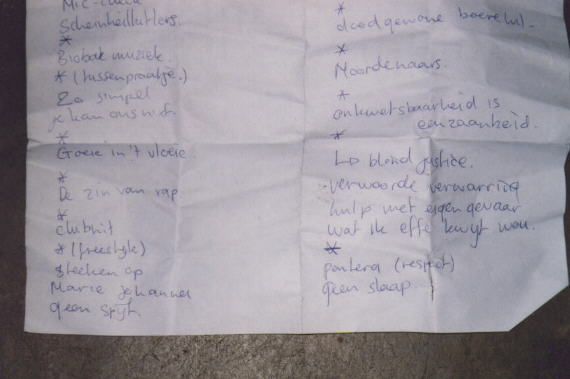 Mic-check
Scheinheillullers.
*
Biobak muziek.
* (tussenpraatje.)
Zo simpel
je kan ons niet
*
Goeie in 't vloeie.
*
De zin van rap
*
clubhit
* (freestyle)
steeken op
Marie Jehanne
geen spijt.
*
doodgewone boerelul.
*
Moordenaars.
*
onkwetsbaarheid is
eenzaamheid.
*
↳ blond justice.
verwoorde verwarring
hulp met eigen gevaar
wat ik effe kwyt wou.
*
pantera (respect)
geen slaap...